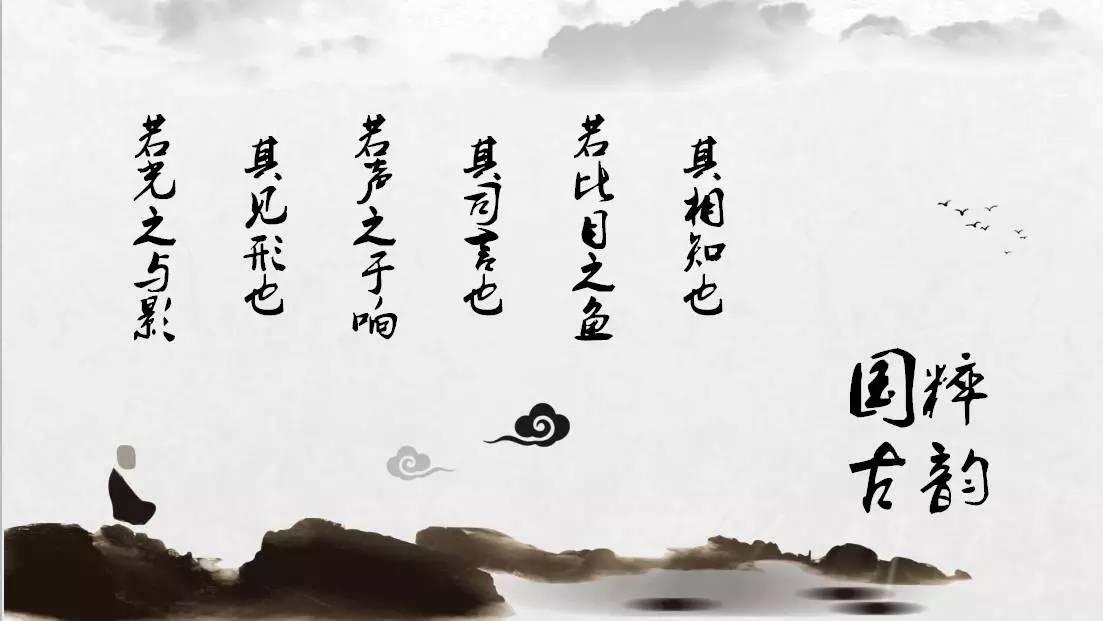 国粹
古韵
其相知也
若比目之鱼
其司言也
若声之于响
其见形也
若光之与影